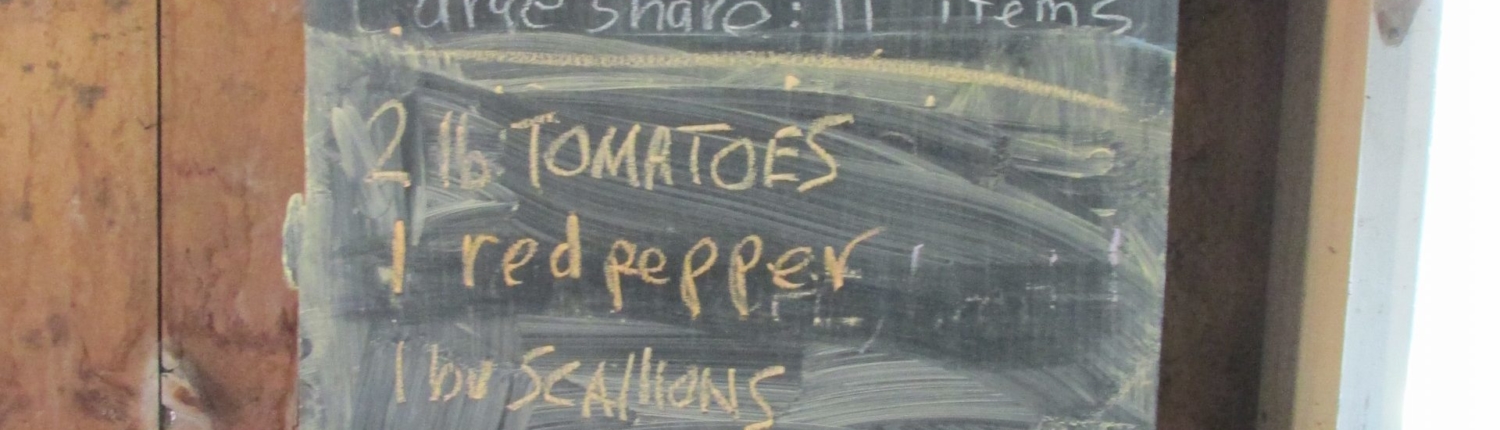 Large share: 11 items
2 lb TOMATOES
1 red pepper
1 bu SCAllIONS